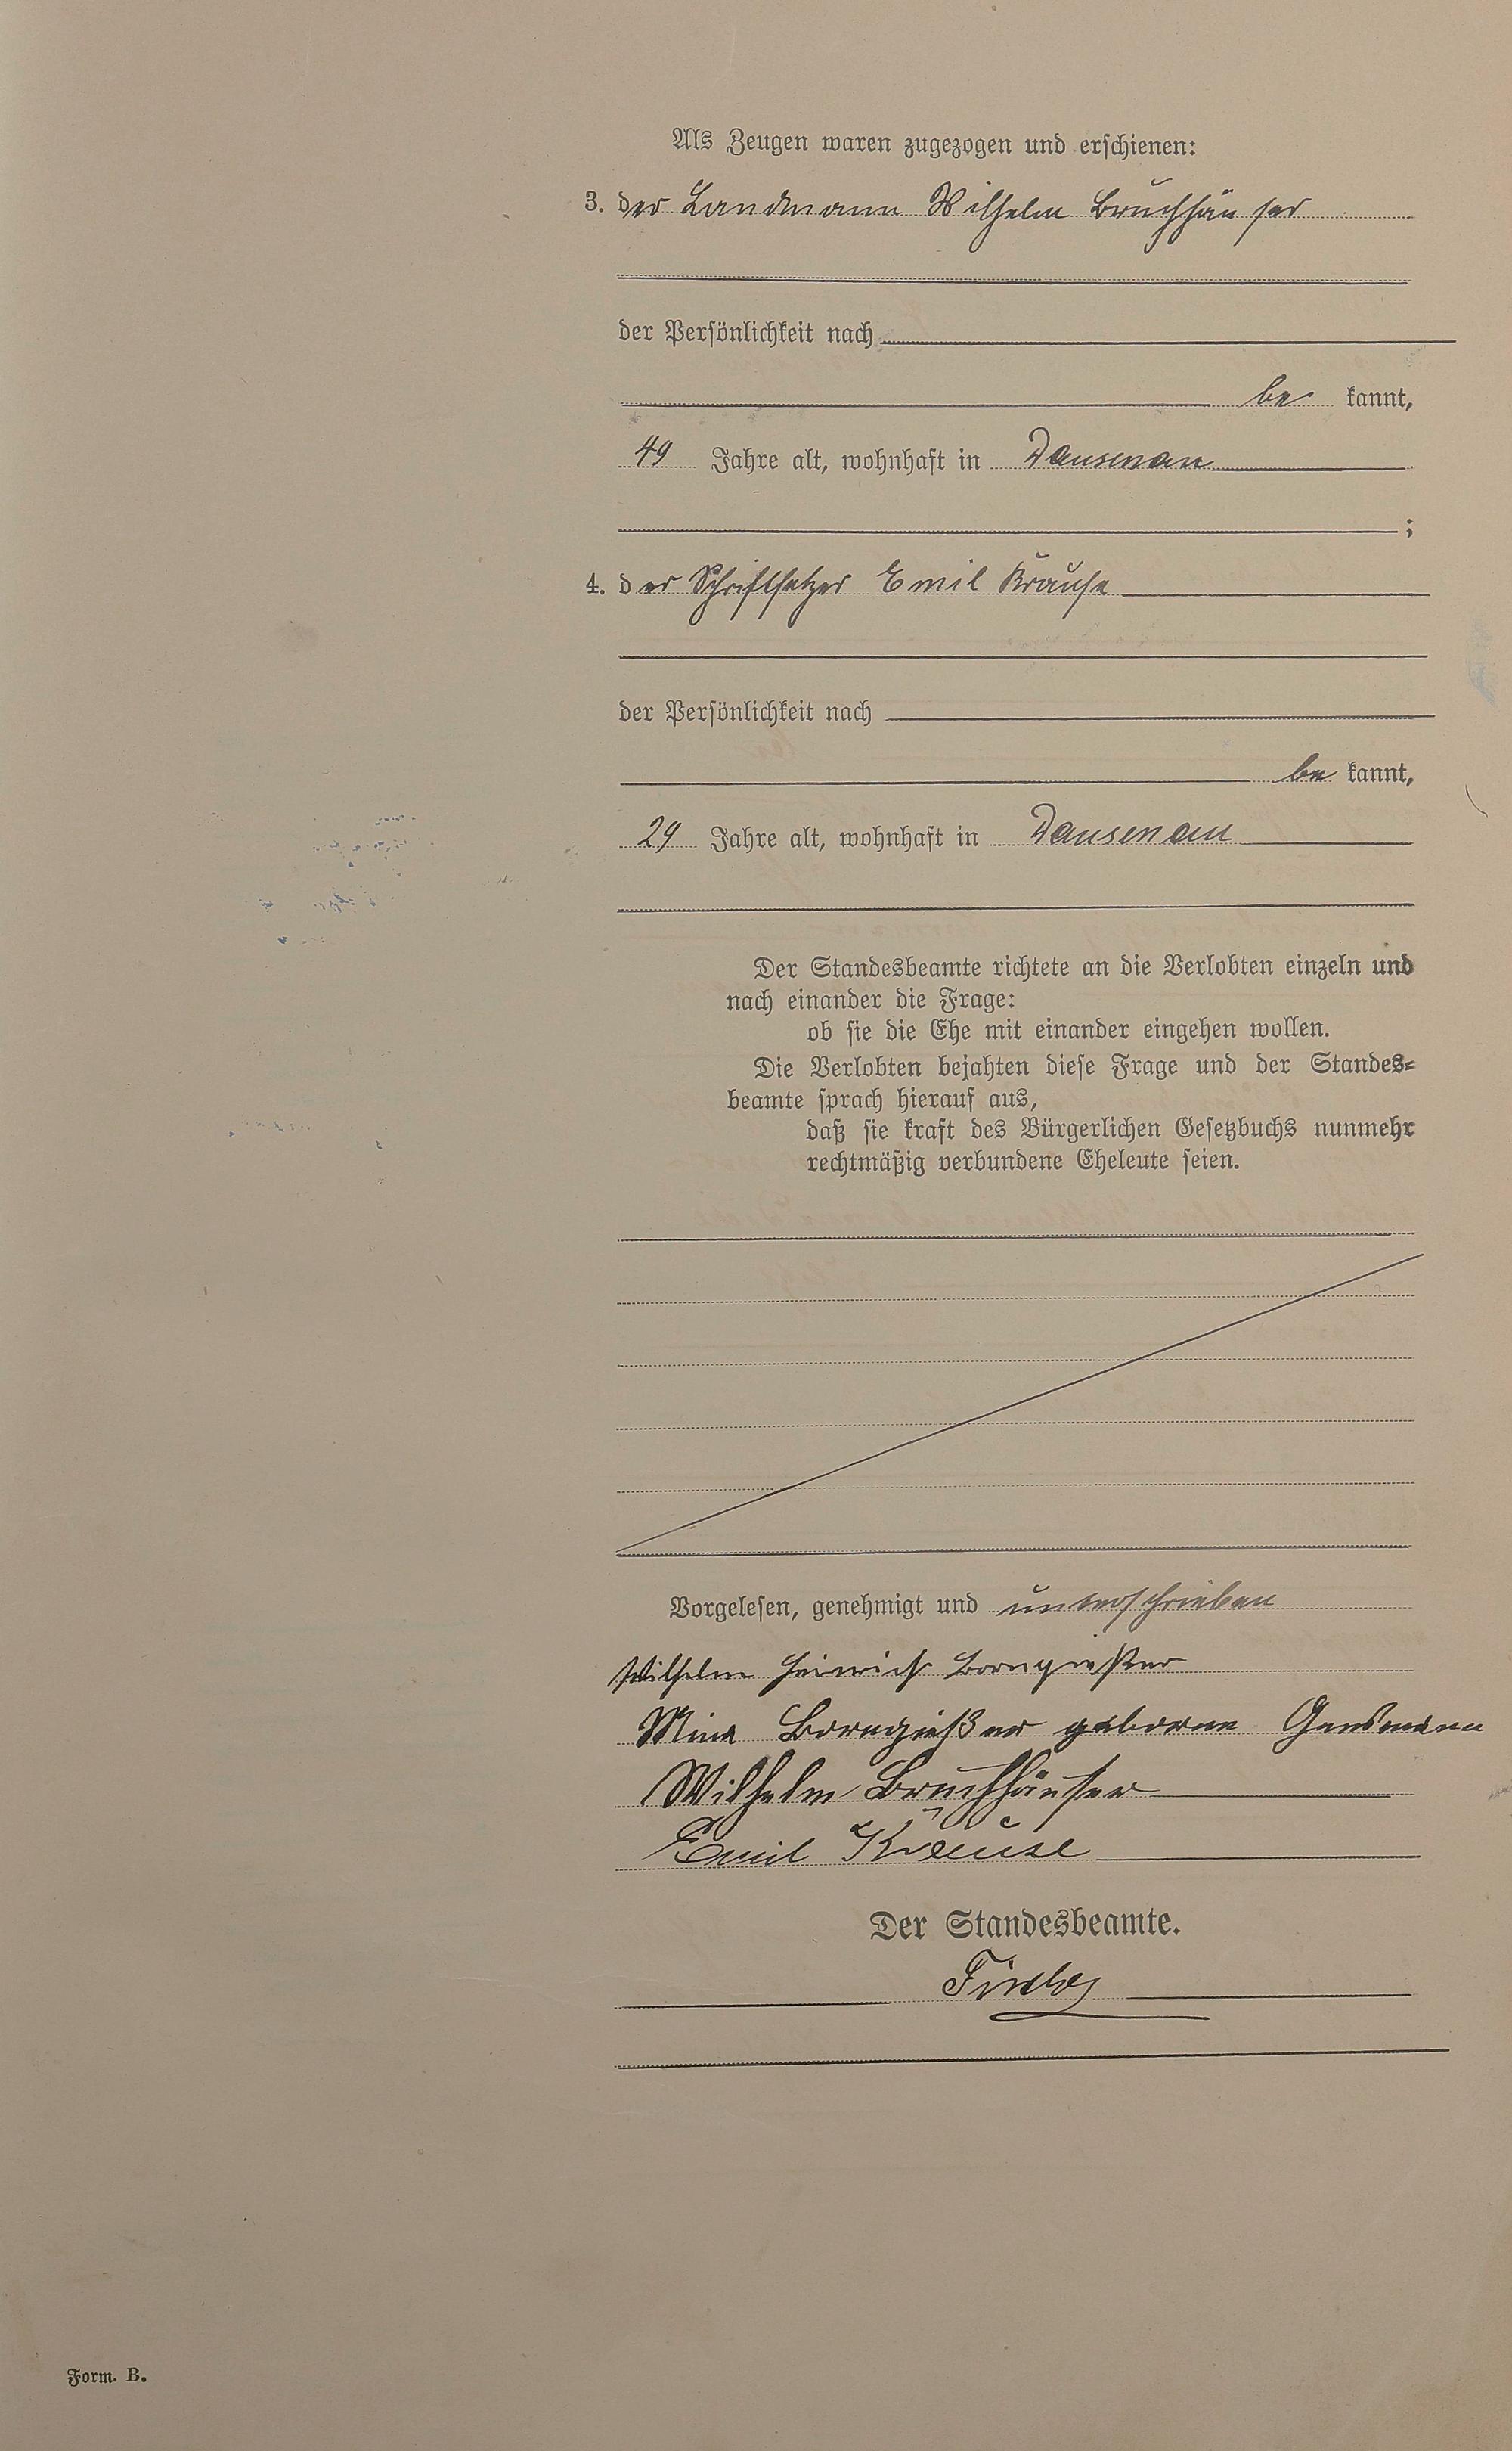 Als Zeugen waren zugezogen und erschienen:
3. der Landmann Wilhelm Bruchhäuser
der Persönlichkeit nach
be kannt,
49 Jahre alt, wohnhaft in Dausenau
;
4. der Schriftsetzer Emil Krause
der Persönlichkeit nach
be kannt,
29 Jahre alt, wohnhaft in Dausenau
Der Standesbeamte richtete an die Verlobten einzeln und
nach einander die Frage:
ob sie die Ehe mit einander eingehen wollen.
Die Verlobten bejahten diese Frage und der Standes=
beamte sprach hierauf aus,
daß sie kraft des Bürgerlichen Gesetzbuchs nunmehr
rechtmäßig verbundene Eheleute seien.
Vorgelesen, genehmigt und unterschrieben
Wilhelm Heinrich Borngießer
Mina Borngießer geborene
Wilhelm Bruchhäuser
Emil Krause
Der Standesbeamte.
Form. B.